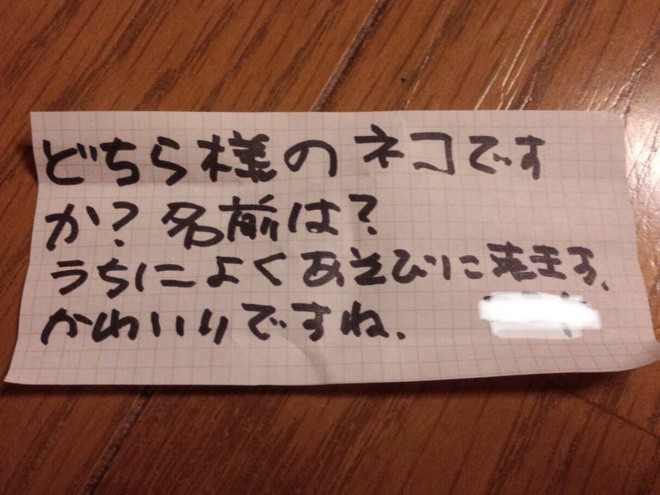 どちら様のネコです
か?名前は?
うちによくあそびに来ます.
かわいいですね.